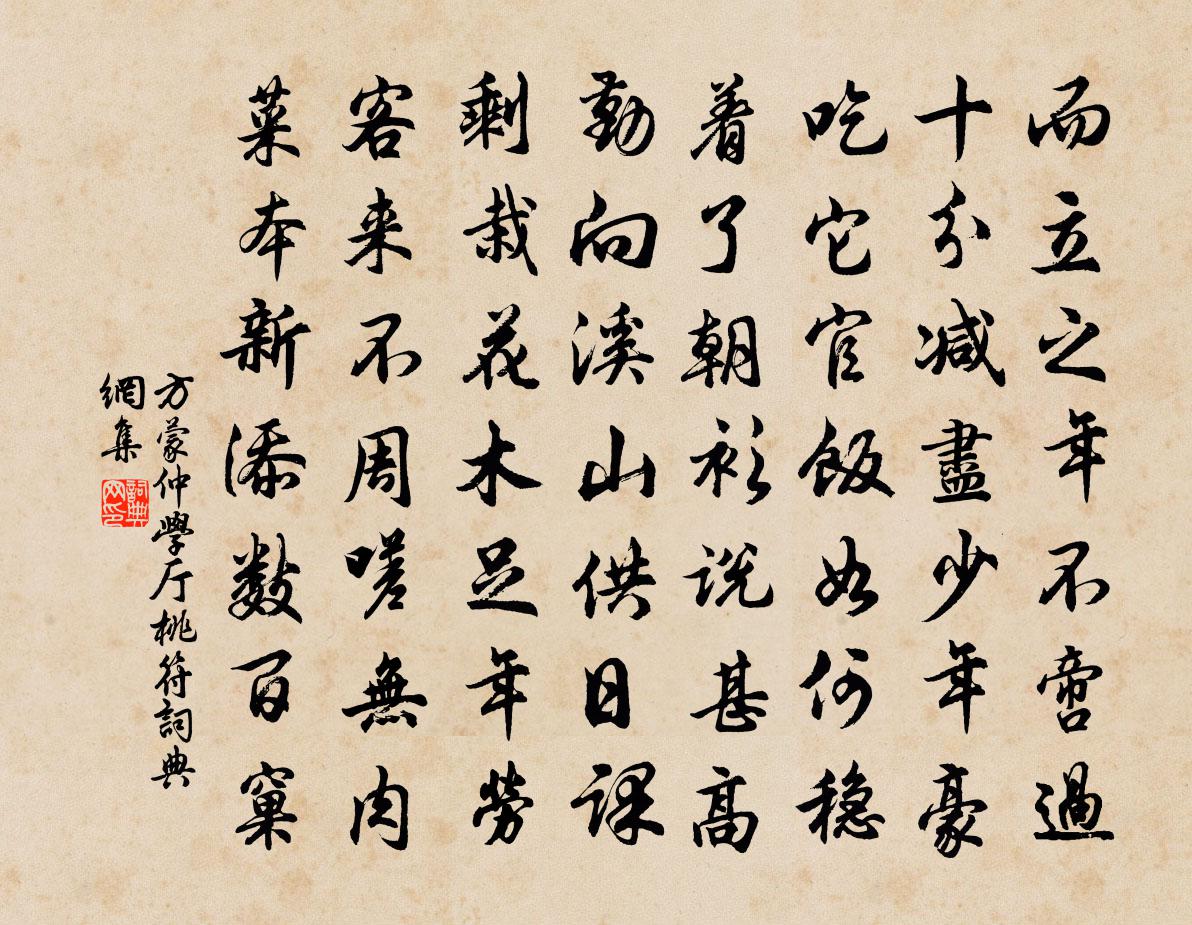 而立之年不啻過
十分减盡少年豪
吃它官飯如何穏
着了朝衫説甚高
勤向溪山供日課
剩栽花木足年勞
客来不周嗟無肉
菜本新添數百窠
方蒙仲學厅桃符詞典
網集
詞典网印